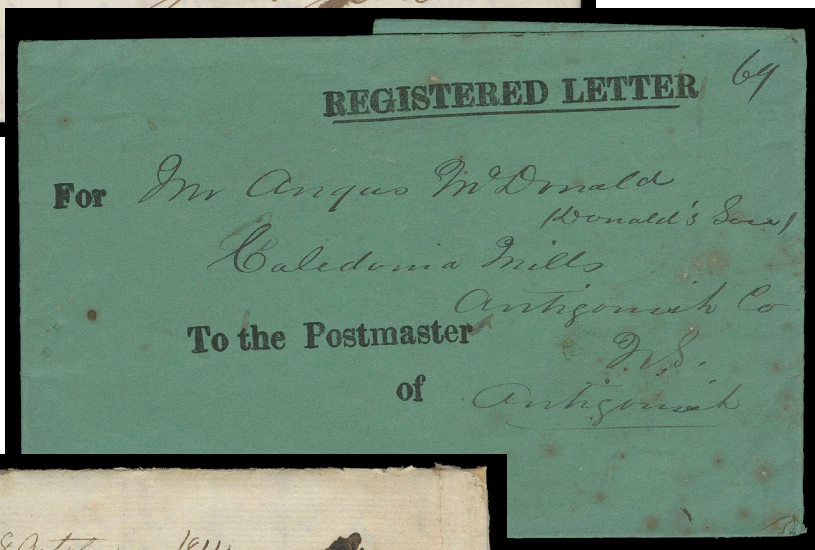 REGISTERED LETTER 69
For Mr Angus McDonald
(Donald's Son)
Caledonia Mills
Antigonish Co
N.S.
To the Postmaster
of Antigonish